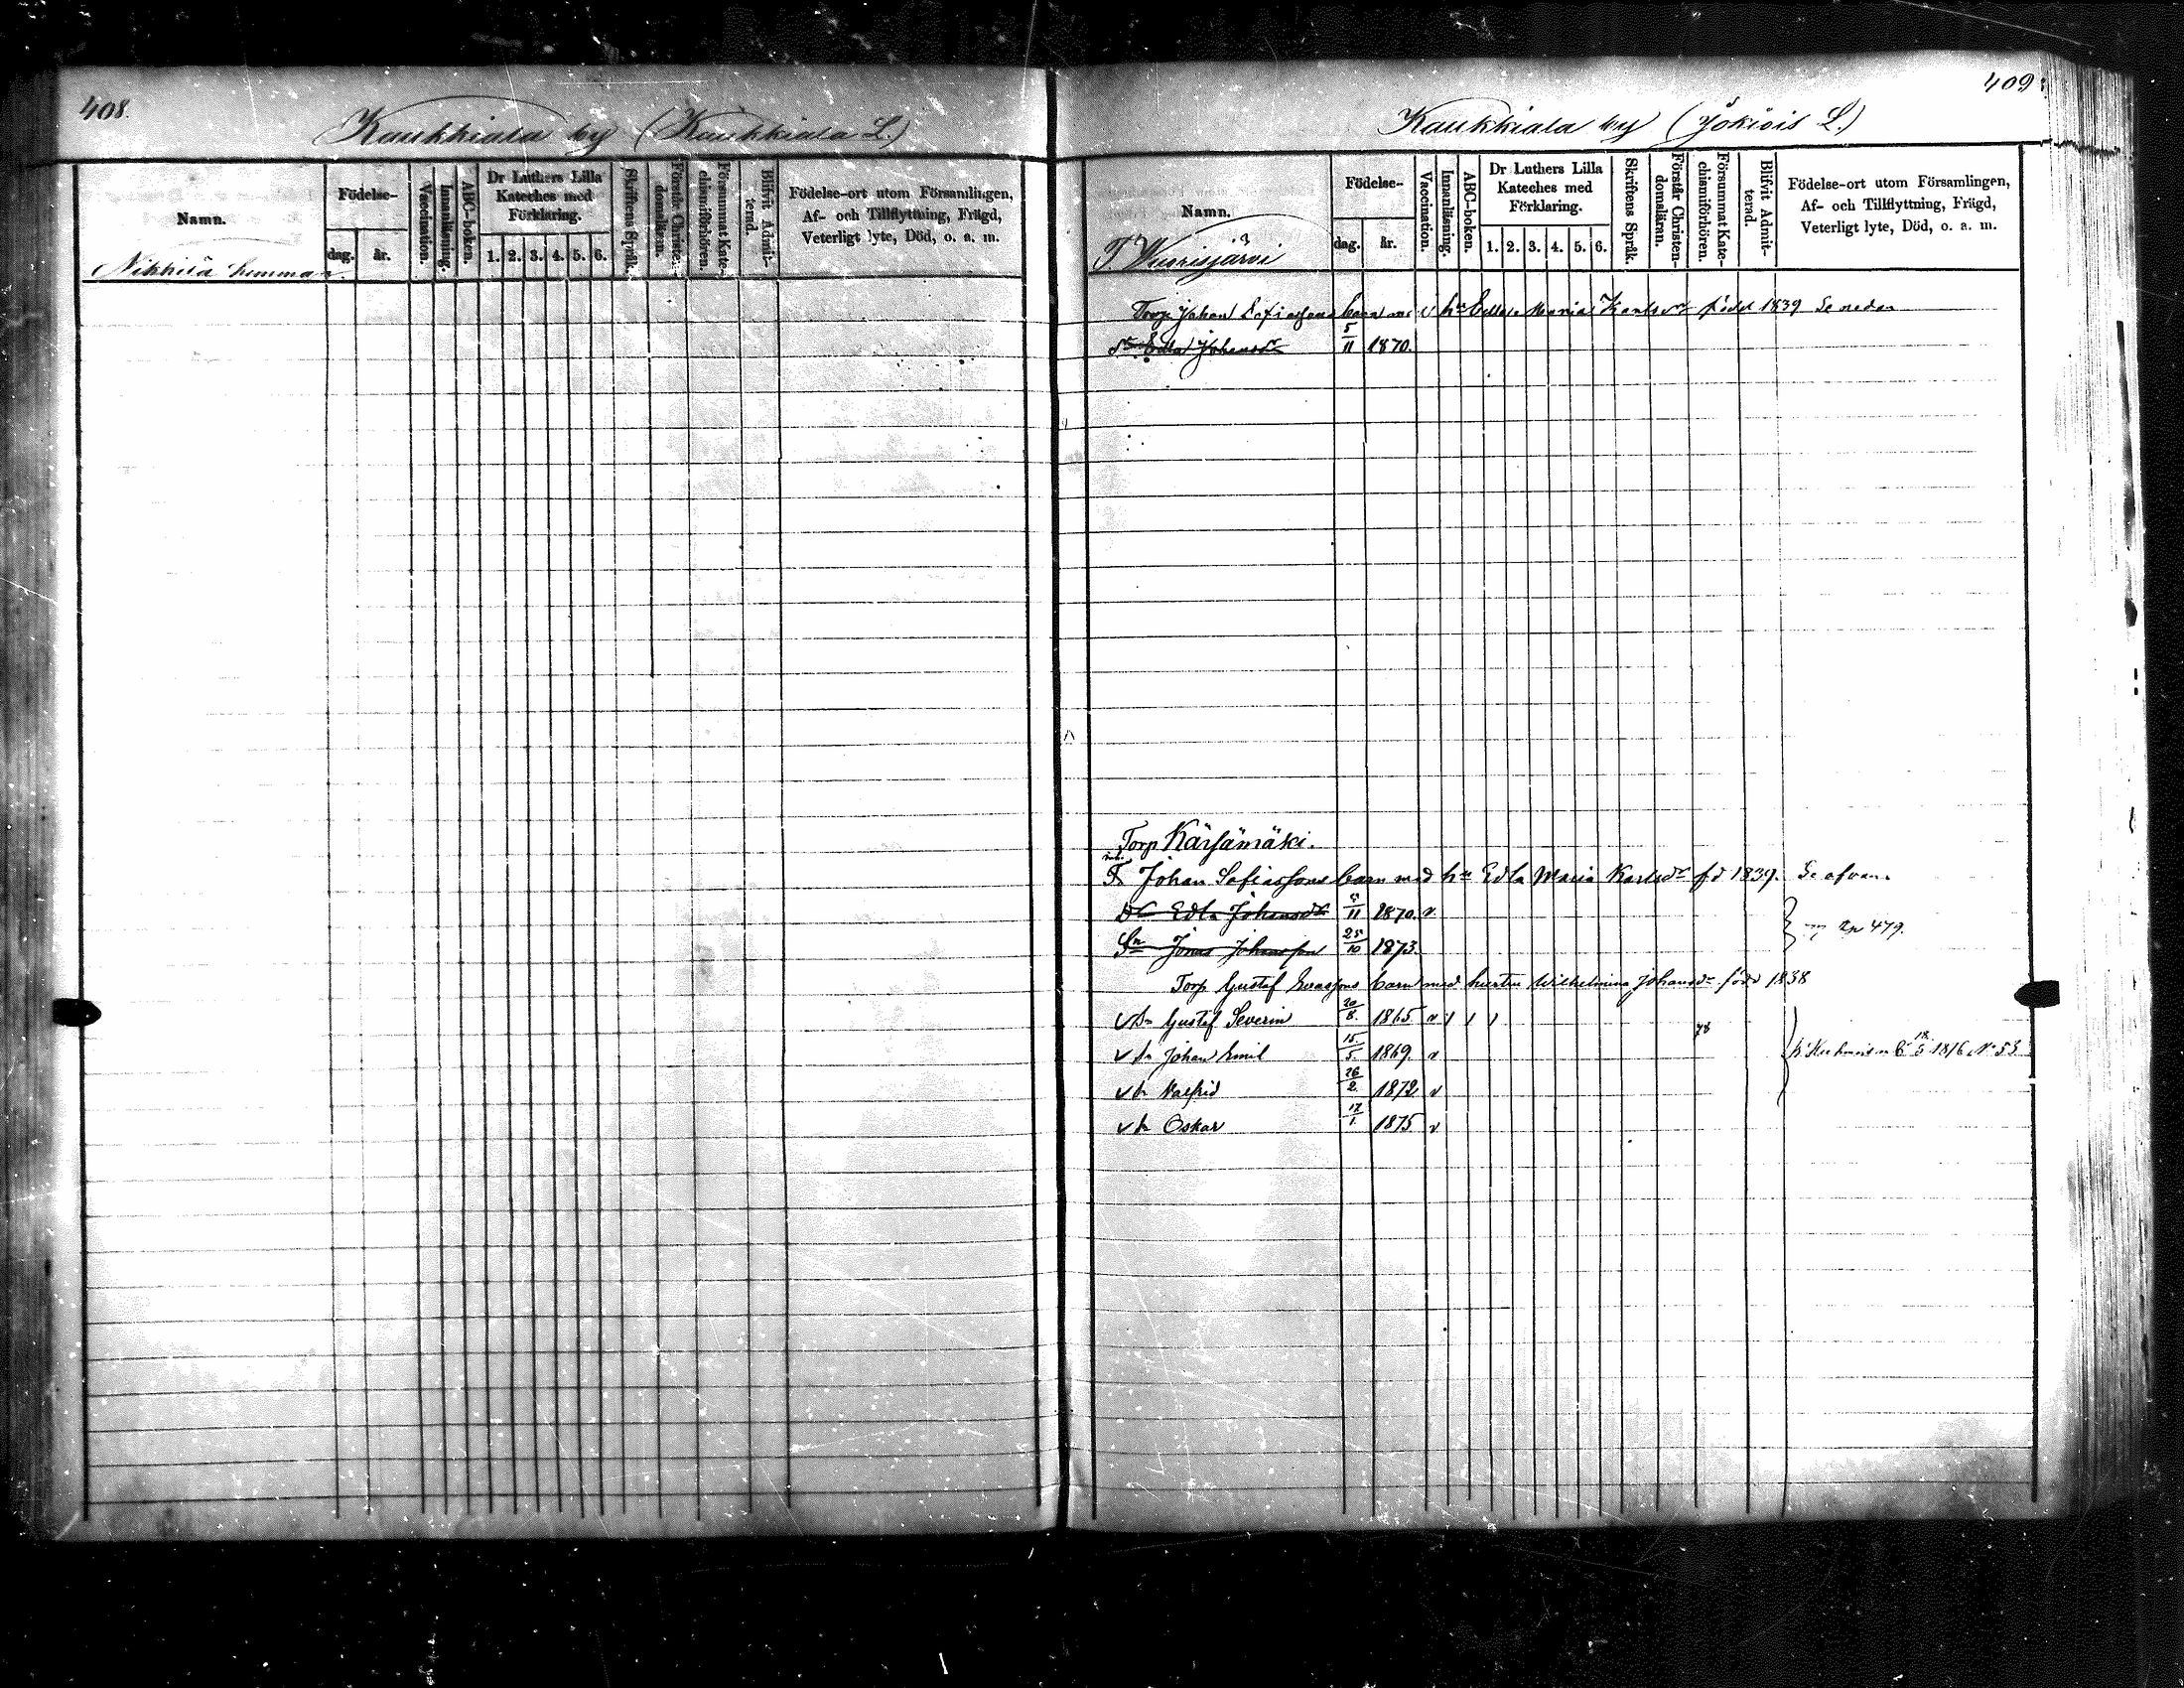 408.
Kaukkiala by (Kaukkiala L.)
Namn.
Födelse-
dag.
år.
Vaccination.
Innanläsning.
ABC-boken.
Dr Luthers Lilla
Kateches med
Förklaring.
1. 2. 3. 4. 5. 6.
Skriftens Språk.
Förstår Christen-
domsläran.
Försummat Kate-
chismiförhören.
Blifvit Admit-
terad.
Födelse-ort utom Församlingen,
Af- och Tillflyttning, Frägd,
Veterligt lyte, Död, o. a. m.
Nikkilä hemman.
409.
Kaukkiala by (Jokiois L.)
Namn.
Födelse-
dag.
år.
Vaccination.
Innanläsning.
ABC-boken.
Dr Luthers Lilla
Kateches med
Förklaring.
1. 2. 3. 4. 5. 6.
Skriftens Språk.
Förstår Christen-
domsläran.
Försummat Kate-
chismiförhören.
Blifvit Admit-
terad.
Födelse-ort utom Församlingen,
Af- och Tillflyttning, Frägd,
Veterligt lyte, Död, o. a. m.
T. Wuorisjärvi
Torp. Johan Sofiassons barn m. hu Edla Maria Karlsdr född 1839 Se nedan
Dr Edla Johansdr 5/11 1870.
Torp Kärsämäki.
Johan Sofiassons barn med hu Edla Maria Karlsdr fd 1839. Se ofvan.
Dr Edla Johansdr 5/11 1870. v.
Sn Jonas Johansson 25/10 1873.
479.
Torp. Gustaf barn med hustru Wilhelmina Johansdr född 1838
v Sn Gustaf Severin 20/8. 1865 v
78
v Sn Johan Emil 15/5. 1869. v
18/5 1876 No 53
v Sn Walfrid 26/2. 1872 v
v Sn Oskar 17/1. 1875 v